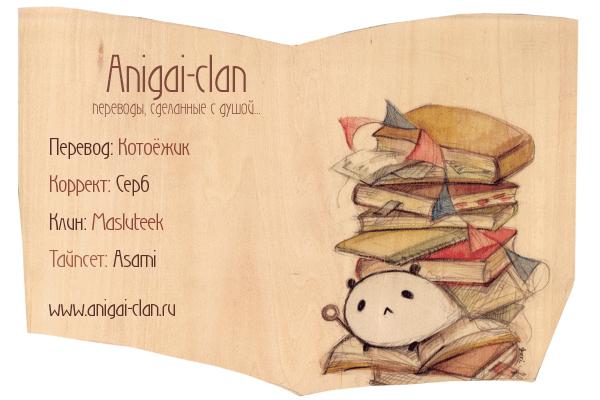 Anigai-clan
переводы, сделанные с душой...
Перевод: Котоёжик
Коррект: Серб
Клин: Masluteek
Тайпсет: Asami
www.anigai-clan.ru